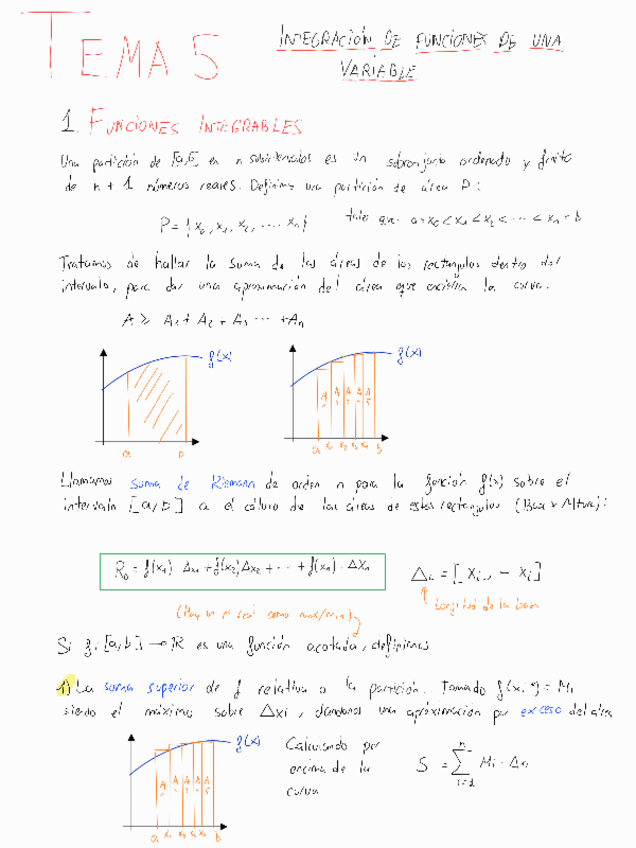 TEMA 5
INTEGRACIÓN DE FUNCIONES DE UNA
VARIABLE
1. FUNCIONES INTEGRABLES
Una partición de [a,b] en n subintervalos es un subconjunto ordenado y finito
de n + 1 números reales. Definimos una partición de área P:
P = { x₀, x₁, x₂, ... xₙ } tales que a = x₀ < x₁ < x₂ < ... < xₙ = b
Tratamos de hallar la suma de las áreas de los rectángulos dentro del
intervalo, para dar una aproximación del área que la curva.
A ≥ A₁ + A₂ + A₃ ... + Aₙ
f(x)
a b
f(x)
A A A A A
a x₁ x₂ x₃ x₄ b
Llamamos suma de Riemann de orden n para la función f(x) sobre el
intervalo [a,b] a el cálculo de las áreas de estos rectángulos (Base x Altura):
f(x₁) · Δx₁ + f(x₂) Δx₂ + ... + f(xₙ) · Δxₙ
Longitud de la base
Si f: [a,b] → R es una función acotada, definimos
1) La suma superior de f relativa a la partición. Tomado
siendo el máximo sobre Δxi, dándonos una aproximación por exceso del área
f(x)
A A A A A
a x₁ x₂ x₃ x₄ b
Calculando por
encima de la
curva
S = Σ Mi · Δn
n
i=1